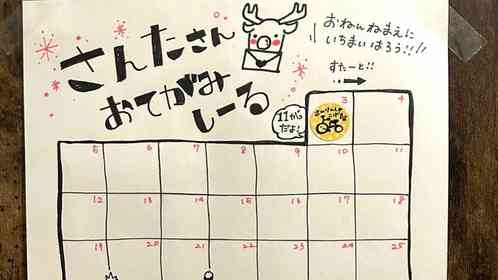 さんたさん
おてがみ
しーる
おねんねまえに
いちまいはろう!!
すたーと!!
11がつ
だよ!
3 4
5 6 7 8 9 10 11
12 13 14 15 16 17 18
19 20 21 22 23 24 25